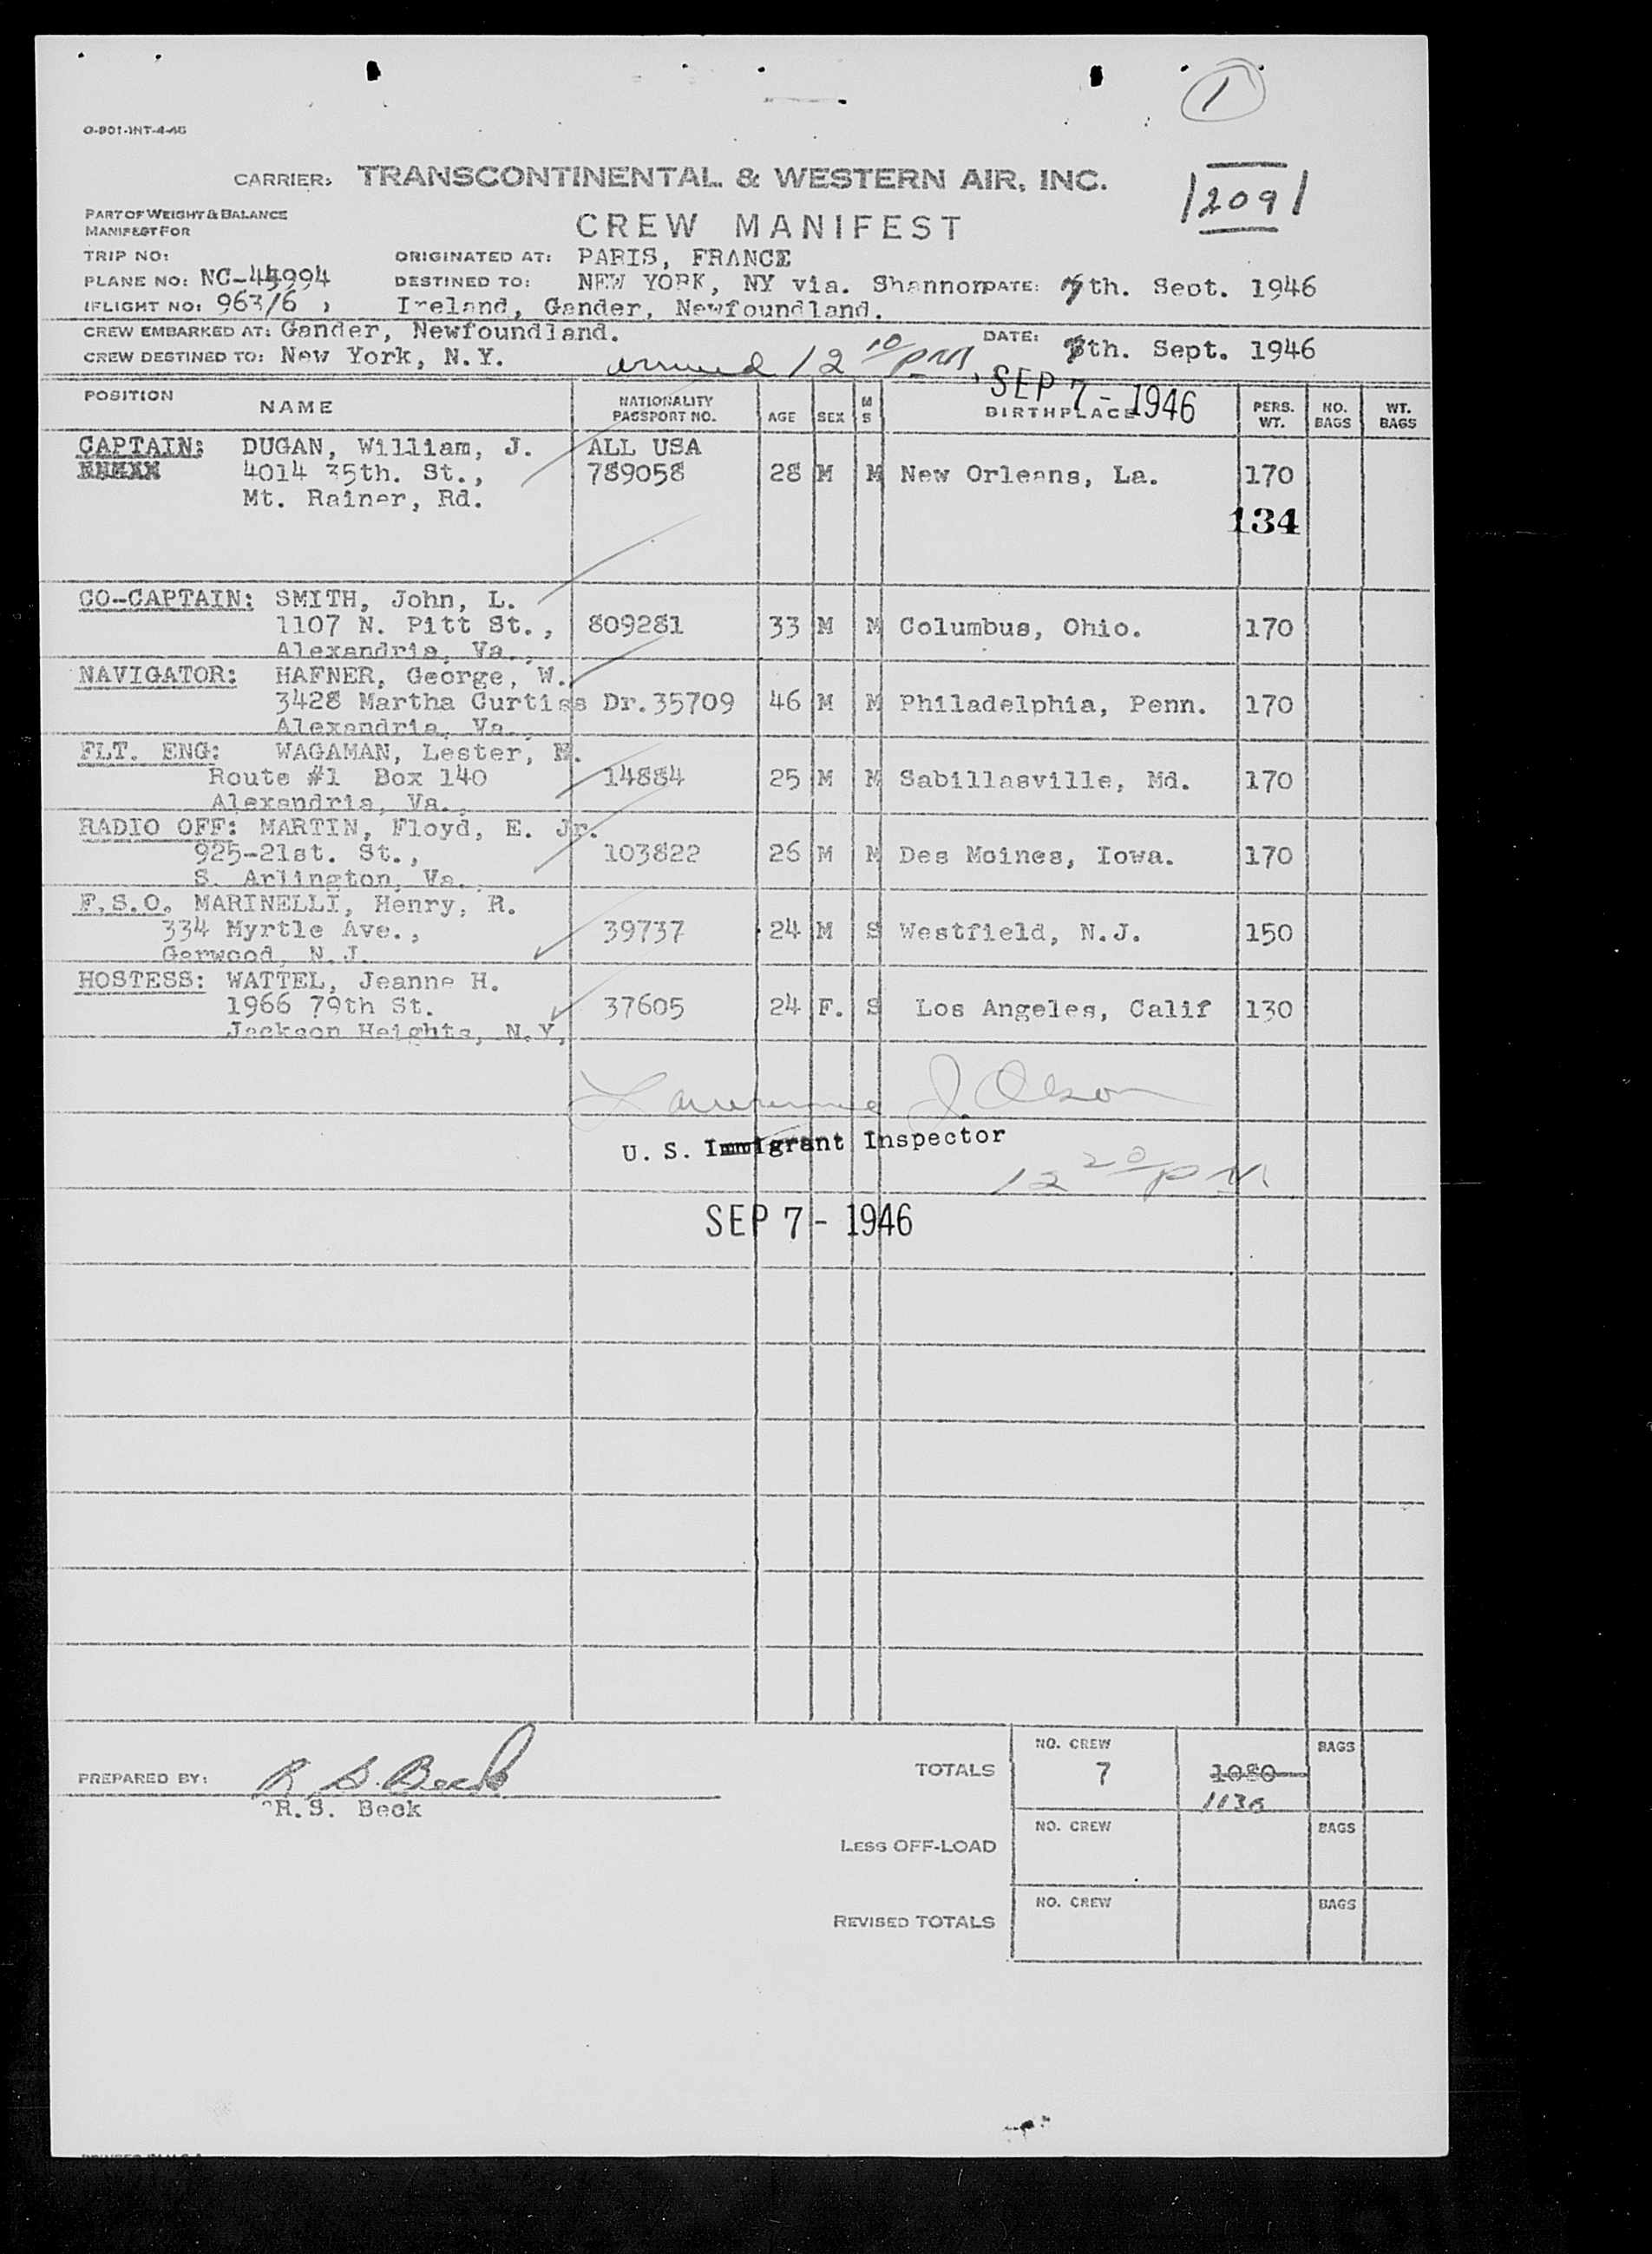 1
O-901-INT-4-46
CARRIER: TRANSCONTINENTAL & WESTERN AIR, INC.
1209
PART OF WEIGHT & BALANCE
MANIFEST FOR
CREW MANIFEST
TRIP NO: ORIGINATED AT: PARIS, FRANCE
PLANE NO: NC-45994 DESTINED TO: NEW YORK, NY via. Shannon DATE: 7th. Sept. 1946
FLIGHT NO: 963/6 , Ireland, Gander, Newfoundland.
CREW EMBARKED AT: Gander, Newfoundland. DATE: 7th. Sept. 1946
CREW DESTINED TO: New York, N.Y.
arrived 12 10/pm, SEP 7 - 1946
POSITION NAME NATIONALITY PASSPORT NO. AGE SEX M S BIRTHPLACE PERS. WT. NO. BAGS WT. BAGS
CAPTAIN: DUGAN, William, J. ALL USA
4014 35th. St., 789058 28 M M New Orleans, La. 170
Mt. Rainer, Rd.
134
CO-CAPTAIN: SMITH, John, L.
1107 N. Pitt St., 809281 33 M M Columbus, Ohio. 170
Alexandria, Va.,
NAVIGATOR: HAFNER, George, W.
3428 Martha Curtiss Dr. 35709 46 M M Philadelphia, Penn. 170
Alexandria, Va.,
FLT. ENG: WAGAMAN, Lester, M.
Route #1 Box 140 14884 25 M M Sabillasville, Md. 170
Alexandria, Va.,
RADIO OFF: MARTIN, Floyd, E. Jr.
925-21st. St., 103822 26 M M Des Moines, Iowa. 170
S. Arlington, Va.,
F.S.O. MARINELLI, Henry, R.
334 Myrtle Ave., 39737 24 M S Westfield, N.J. 150
Garwood, N.J.
HOSTESS: WATTEL, Jeanne H.
1966 79th St. 37605 24 F. S Los Angeles, Calif 130
Jackson Heights, N.Y,
Lawrence J. Olson
U. S. Immigrant Inspector
12 20/pm
SEP 7 - 1946
TOTALS NO. CREW 7 1080 BAGS
1130
PREPARED BY: R. S. Beck
R.S. Beck
LESS OFF-LOAD NO. CREW BAGS
REVISED TOTALS NO. CREW BAGS